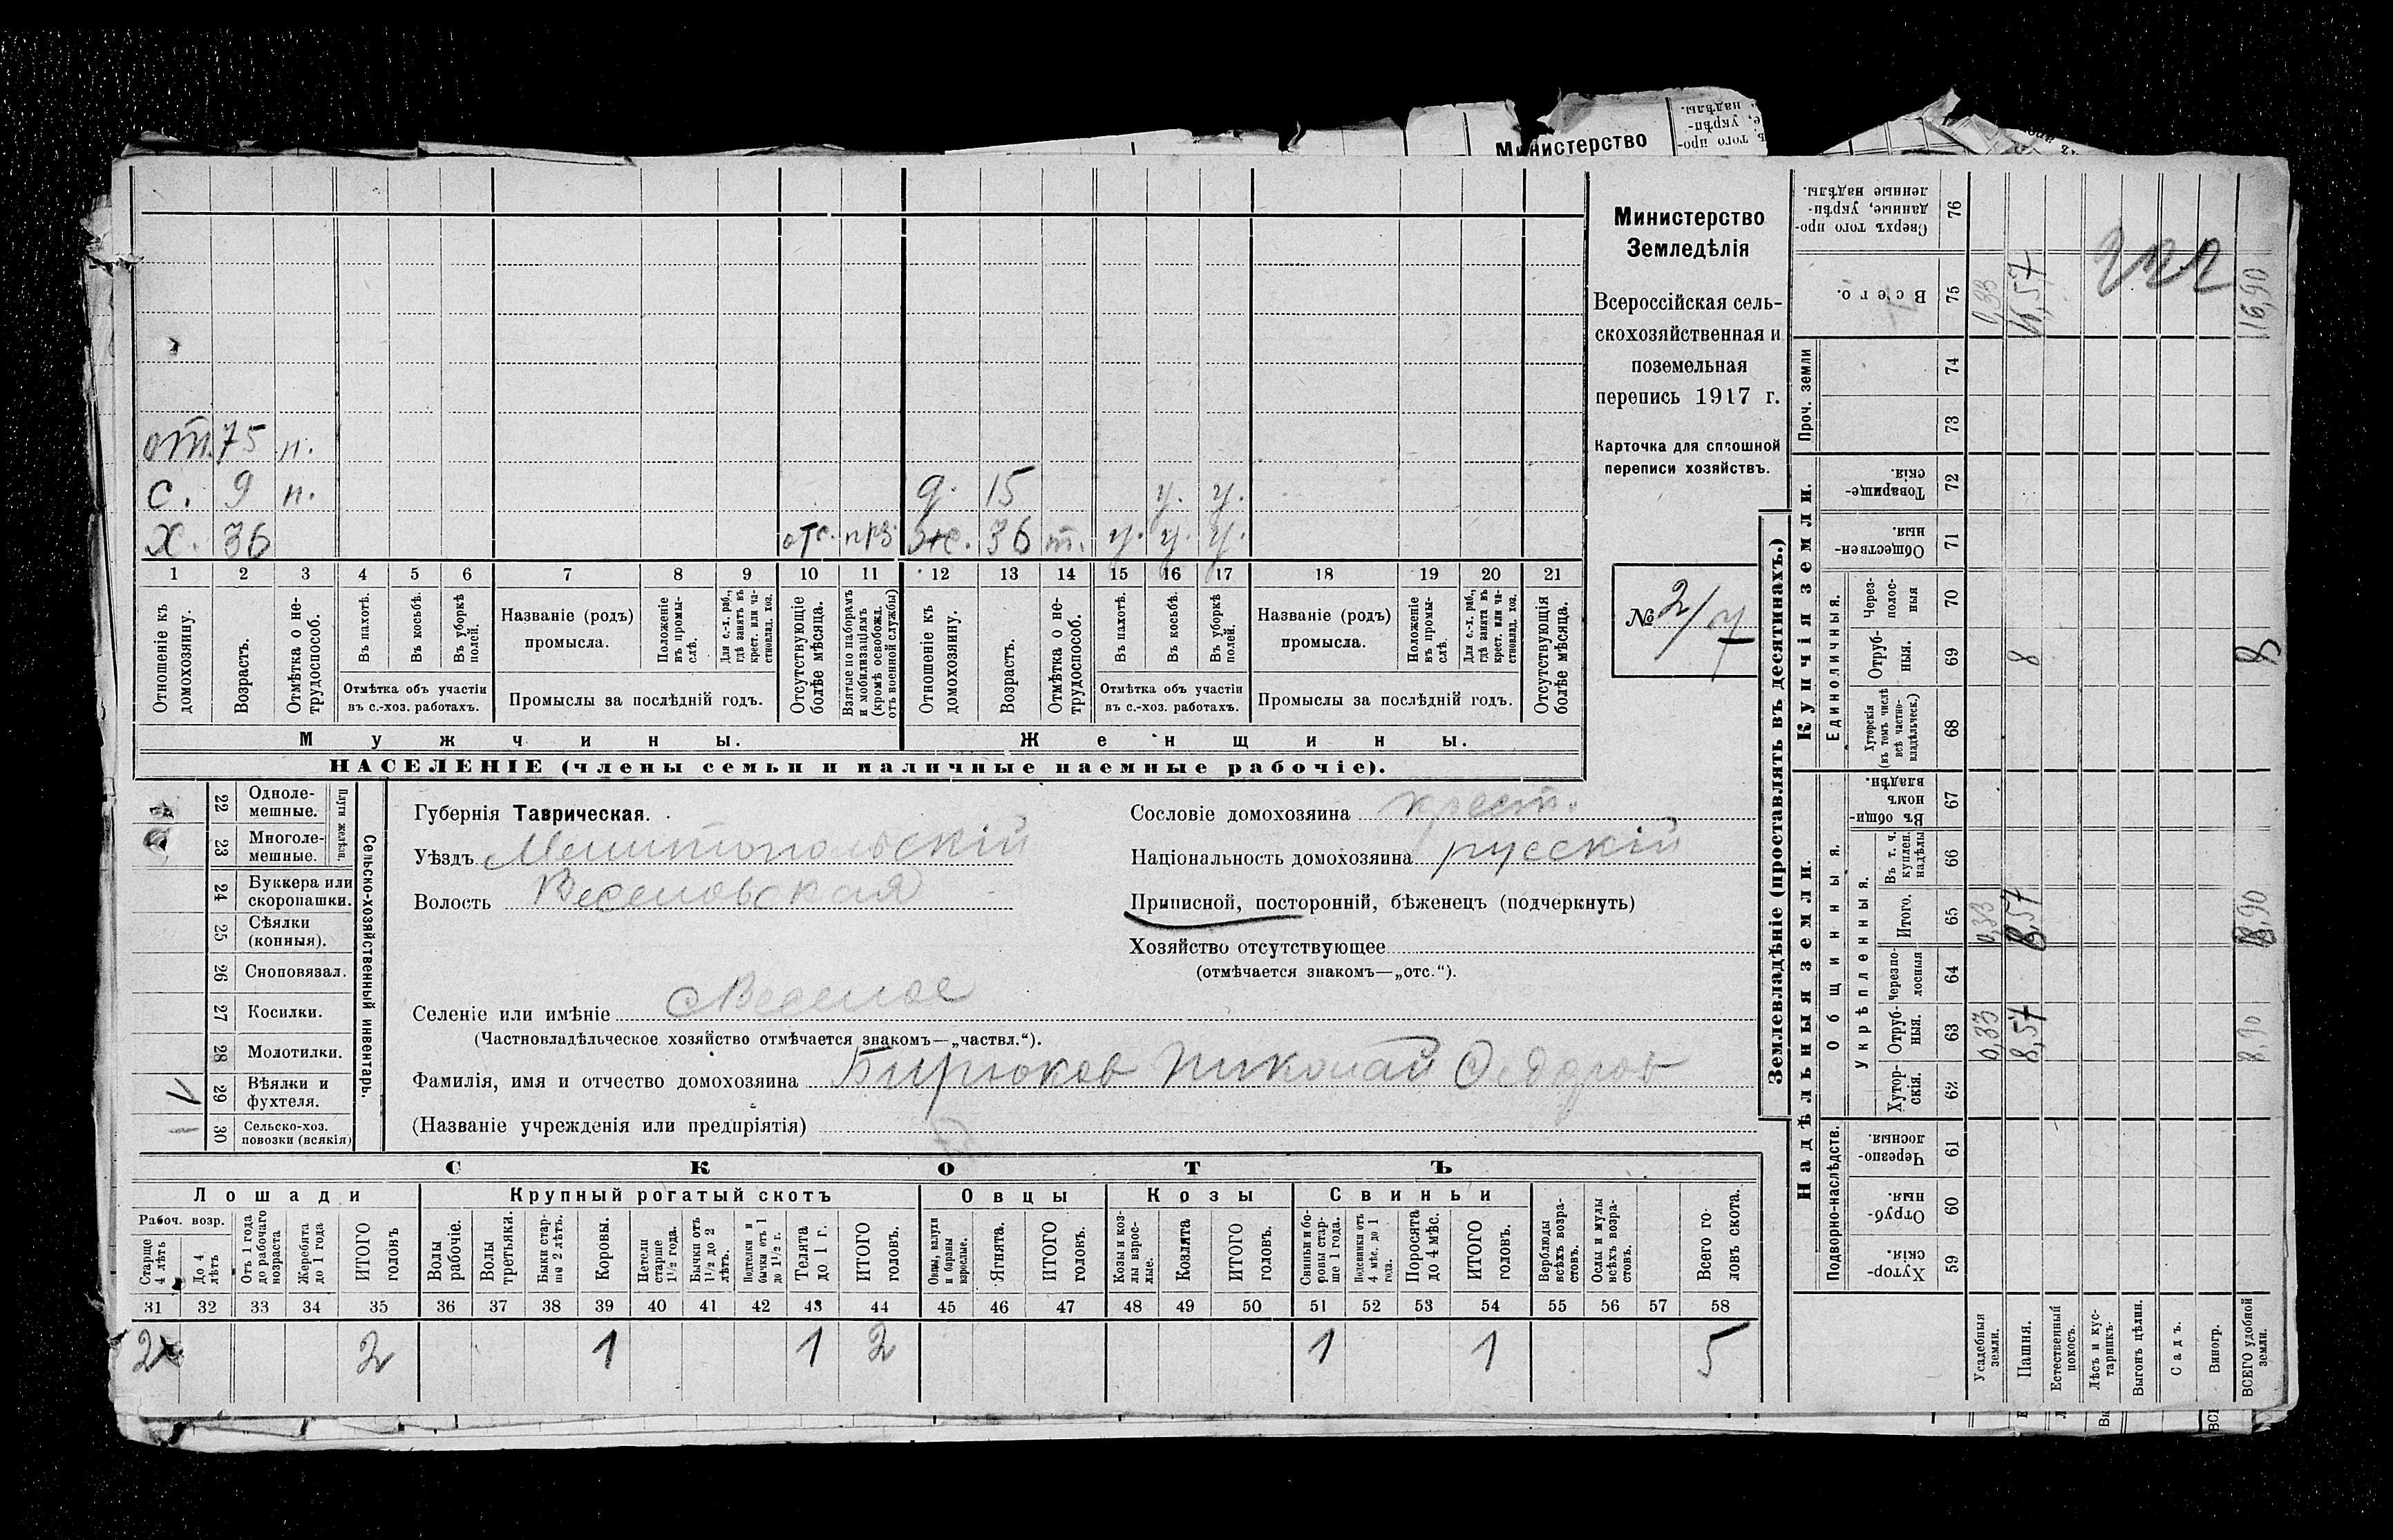 Министерство
Министерство
Земледѣлія
Всероссійская сель-
скохозяйственная и
поземельная
перепись 1917 г.
Карточка для сплошной
переписи хозяйствъ.
№ 2/7
от. 75 н.
с. 9 н. д. 15 у. у.
х. 36 отс. прз. же. 36 т. у. у. у.
1 2 3 4 5 6 7 8 9 10 11 12 13 14 15 16 17 18 19 20 21
Отношеніе къ домохозяину.
Возрастъ.
Отмѣтка о не-трудоспособ.
Въ пахотѣ.
Въ косьбѣ.
Въ уборкѣ полей.
Отмѣтка объ участіи
въ с.-хоз. работахъ.
Названіе (родъ)
промысла.
Положеніе въ промы-слѣ.
Для с.-х. раб., гдѣ занятъ въ крест. или ча-стновлад. хоз.
Промыслы за послѣдній годъ.
Отсутствующіе болѣе мѣсяца.
Взятые по наборамъ и мобилизаціямъ (кромѣ освобожд. отъ военной службы)
Отношеніе къ домохозяину.
Возрастъ.
Отмѣтка о не-трудоспособ.
Въ пахотѣ.
Въ косьбѣ.
Въ уборкѣ полей.
Отмѣтка объ участіи
въ с.-хоз. работахъ.
Названіе (родъ)
промысла.
Положеніе въ промы-слѣ.
Для с.-х. раб., гдѣ занята въ крест. или ча-стновлад. хоз.
Промыслы за послѣдній годъ.
Отсутствующія болѣе мѣсяца.
Мужчины.
Женщины.
НАСЕЛЕНІЕ (члены семьи и наличные наемные рабочіе).
Сельско-хозяйственный инвентарь.
Плуги желѣзн.
22 Однолемешные.
23 Многолемешные.
24 Буккера или скоропашки.
25 Сѣялки (конныя).
26 Сноповязал.
27 Косилки.
28 Молотилки.
29 Вѣялки и фухтеля.
30 Сельско-хоз. повозки (всякія)
Губернія Таврическая.
Уѣздъ Мелитопольскій
Волость Веселовская
Сословіе домохозяина крест.
Національность домохозяина русскій
Приписной, посторонній, бѣженецъ (подчеркнуть)
Хозяйство отсутствующее
(отмѣчается знакомъ—„отс.“).
Селеніе или имѣніе Веселое
(Частновладѣльческое хозяйство отмѣчается знакомъ—„частвл.“).
Фамилія, имя и отчество домохозяина Бирюков Николай Федоров
(Названіе учрежденія или предпріятія)
СКОТЪ
Лошади Крупный рогатый скотъ Овцы Козы Свиньи
Рабоч. возр.
Старше 4 лѣтъ
До 4 лѣтъ
Отъ 1 года до рабочаго возраста
Жеребята до 1 года
ИТОГО головъ
Волы рабочіе.
Волы третьяки.
Быки стар-ше 2 лѣтъ.
Коровы.
Нетели старше 1½ года.
Бычки отъ 1½ до 2 лѣтъ.
Подтелки и бычки отъ 1 до 1½ г.
Телята до 1 г.
ИТОГО головъ.
Овцы, валухи и бараны взрослые.
Ягнята.
ИТОГО головъ.
Козы и коз-лы взрос-лые.
Козлята
ИТОГО головъ.
Свиньи и бо-ровы стар-ше 1 года.
Подсвинки отъ 4 мѣс. до 1 года.
Поросята до 4 мѣс.
ИТОГО головъ.
Верблюды всѣхъ возра-стовъ.
Ослы и мулы всѣхъ возра-стовъ.
Всего го-ловъ скота.
31 32 33 34 35 36 37 38 39 40 41 42 43 44 45 46 47 48 49 50 51 52 53 54 55 56 57 58
2 2 1 1 2 1 1 5
Землевладѣніе (проставлять въ десятинахъ.)
Надѣльныя земли.
Купчія земли.
Проч. земли
Подворно-наслѣдств.
Общинныя.
Укрѣпленныя.
Единоличныя.
Сверхъ того про-данные, укрѣп-ленные надѣлы. 76
Всего. 75 0,33 16,57 16,90
74
73
Товарище-скія. 72
Обществен-ныя. 71
Через-полос-ныя 70
Отруб-ныя. 69 8 8
Хуторскія (въ томъ числѣ всѣ частно-владѣльческ.) 68
Въ общи-номъ владѣн. 67
Въ т. ч. куплен. надѣлы 66
Итого. 65 0,33 8,57 8,90
Черезпо-лосныя 64
Отруб-ныя. 63 0,33 8,57 8,90
Хутор-скія. 62
Черезпо-лосныя. 61
Отруб-ныя. 60
Хутор-скія. 59
Усадебныя земли.
Пашня.
Естественный покосъ.
Лѣсъ и кус-тарникъ.
Выгонъ цѣлин.
Садъ.
Виногр.
ВСЕГО удобной земли.